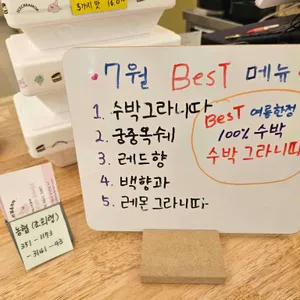 5가지맛
7월 BesT 메뉴
1. 수박그라니따
2. 궁중옥수
3. 레드향
4. 백향과
5. 레몬그라니따
BesT 여름한정
100% 수박
수박 그라니따
농협
351 - 1173
- 3141 - 43